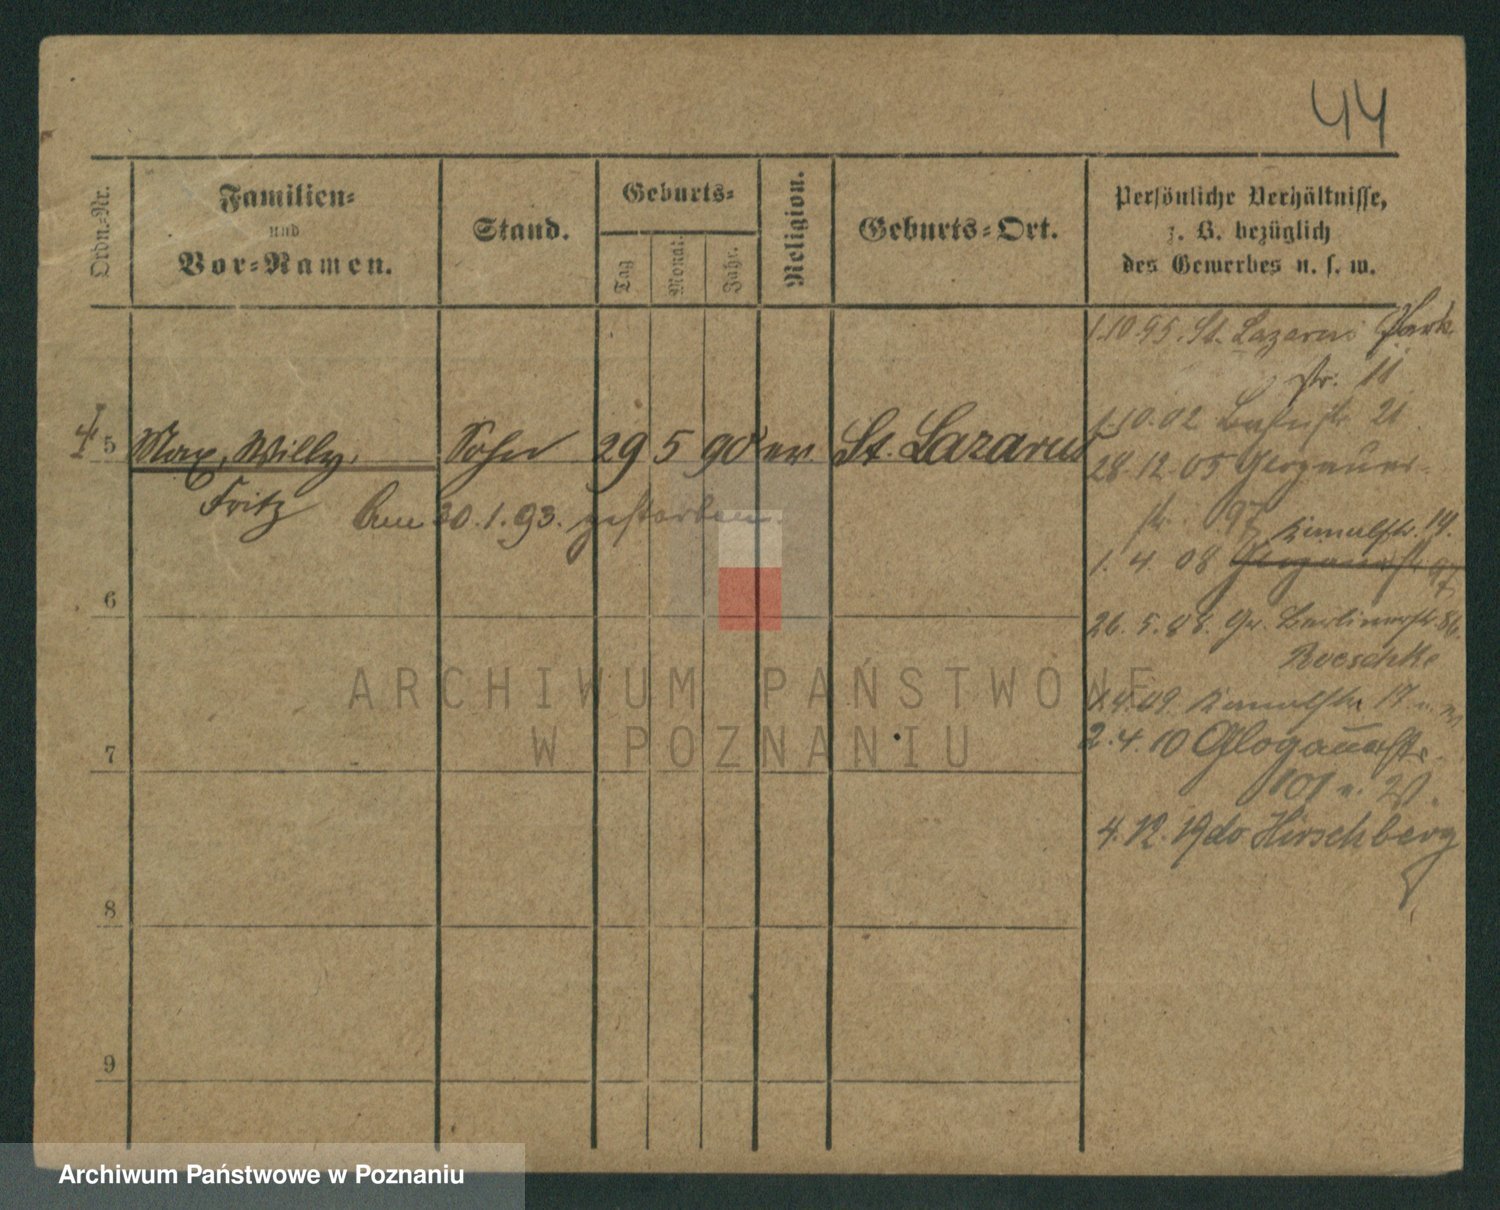 44
Ordn.-Nr.
Familien-
und
Vor-Namen.
Stand.
Geburts-
Tag
Monat.
Jahr.
Religion.
Geburts-Ort.
Persönliche Verhältnisse,
z. B. bezüglich
des Gewerbes u. s. w.
1.10.95. St. Lazarus Park
str. 11
1.10.02 21
5 Max, Willy, Sohn 29 5 90 ev. St. Lazarus
28.12.05 Glogauer-
Fritz Am 30.1.93. gestorben.
str. 97 Kanalstr. 19.
1. 4 08 Glogauerstr 97
6
26. 5. 08. Gr. Berlinerstr. 86.
Roeschke
ARCHIWUM PAŃSTWOWE
1.4.09. Kanalstr 17
W POZNANIU
2.4.10 Glogauerstr.
7
101 u. W.
4.12.19 do Hirschberg
8
9
Archiwum Państwowe w Poznaniu